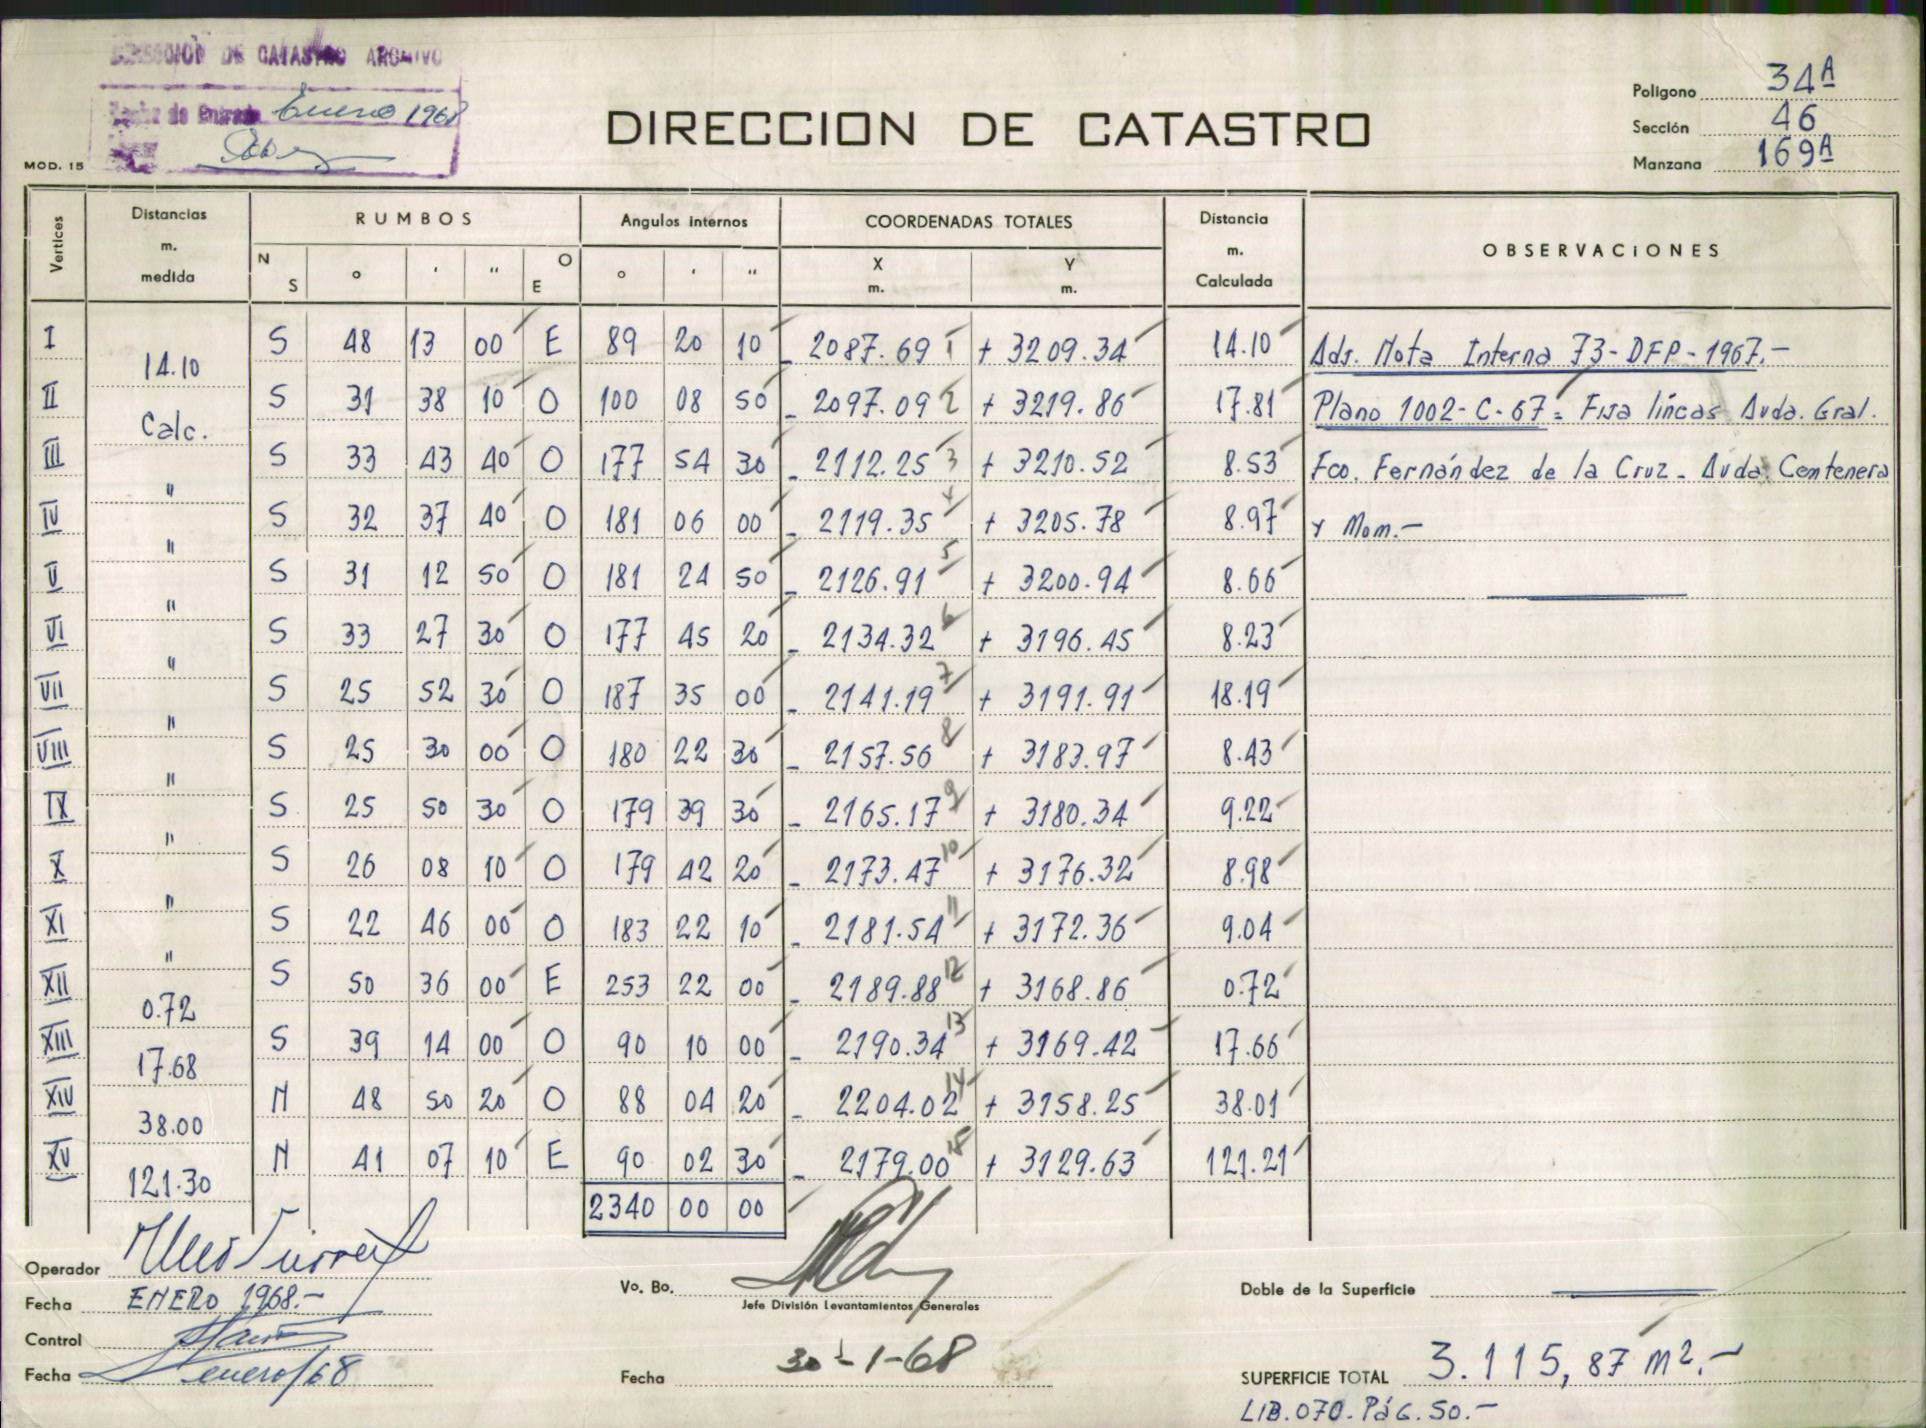 DIRECCION DE CATASTRO ARCHIVO
Fecha de Entrada Enero 1968
MOD. 15
DIRECCION DE CATASTRO
Polígono 34A
Sección 46
Manzana 169A
Vertices Distancias m. medida RUMBOS Angulos internos COORDENADAS TOTALES Distancia m. Calculada OBSERVACIONES
N S ° ' " O E ° ' " X m. Y m.
I S 48 13 00 E 89 20 10 - 2087.69 1 + 3209.34 14.10 Ads. Nota Interna 73-DFP-1967.-
14.10
II S 31 38 10 O 100 08 50 - 2097.09 2 + 3219.86 17.81 Plano 1002-C-67= Fija líneas Avda. Gral.
Calc.
III S 33 43 40 O 177 54 30 - 2112.25 3 + 3210.52 8.53 Fco. Fernández de la Cruz - Avda. Centenera
"
IV S 32 37 40 O 181 06 00 - 2119.35 4 + 3205.78 8.97 y Mom.-
"
V S 31 12 50 O 181 24 50 - 2126.91 5 + 3200.94 8.66
"
VI S 33 27 30 O 177 45 20 - 2134.32 6 + 3196.45 8.23
"
VII S 25 52 30 O 187 35 00 - 2141.19 7 + 3191.91 18.19
"
VIII S 25 30 00 O 180 22 30 - 2157.56 8 + 3183.97 8.43
"
IX S 25 50 30 O 179 39 30 - 2165.17 9 + 3180.34 9.22
"
X S 26 08 10 O 179 42 20 - 2173.47 10 + 3176.32 8.98
"
XI S 22 46 00 O 183 22 10 - 2181.54 11 + 3172.36 9.04
"
XII S 50 36 00 E 253 22 00 - 2189.88 12 + 3168.86 0.72
0.72
XIII S 39 14 00 O 90 10 00 - 2190.34 13 + 3169.42 17.66
17.68
XIV N 48 50 20 O 88 04 20 - 2204.02 14 + 3158.25 38.01
38.00
XV N 41 07 10 E 90 02 30 - 2179.00 15 + 3129.63 121.21
121.30
2340 00 00
Operador
Fecha ENERO 1968.-
Control
Fecha enero/68
Vo. Bo.
Jefe División Levantamientos Generales
Fecha 30-1-68
Doble de la Superficie
SUPERFICIE TOTAL 3.115,87 m2.-
LIB.070-Pág.50.-